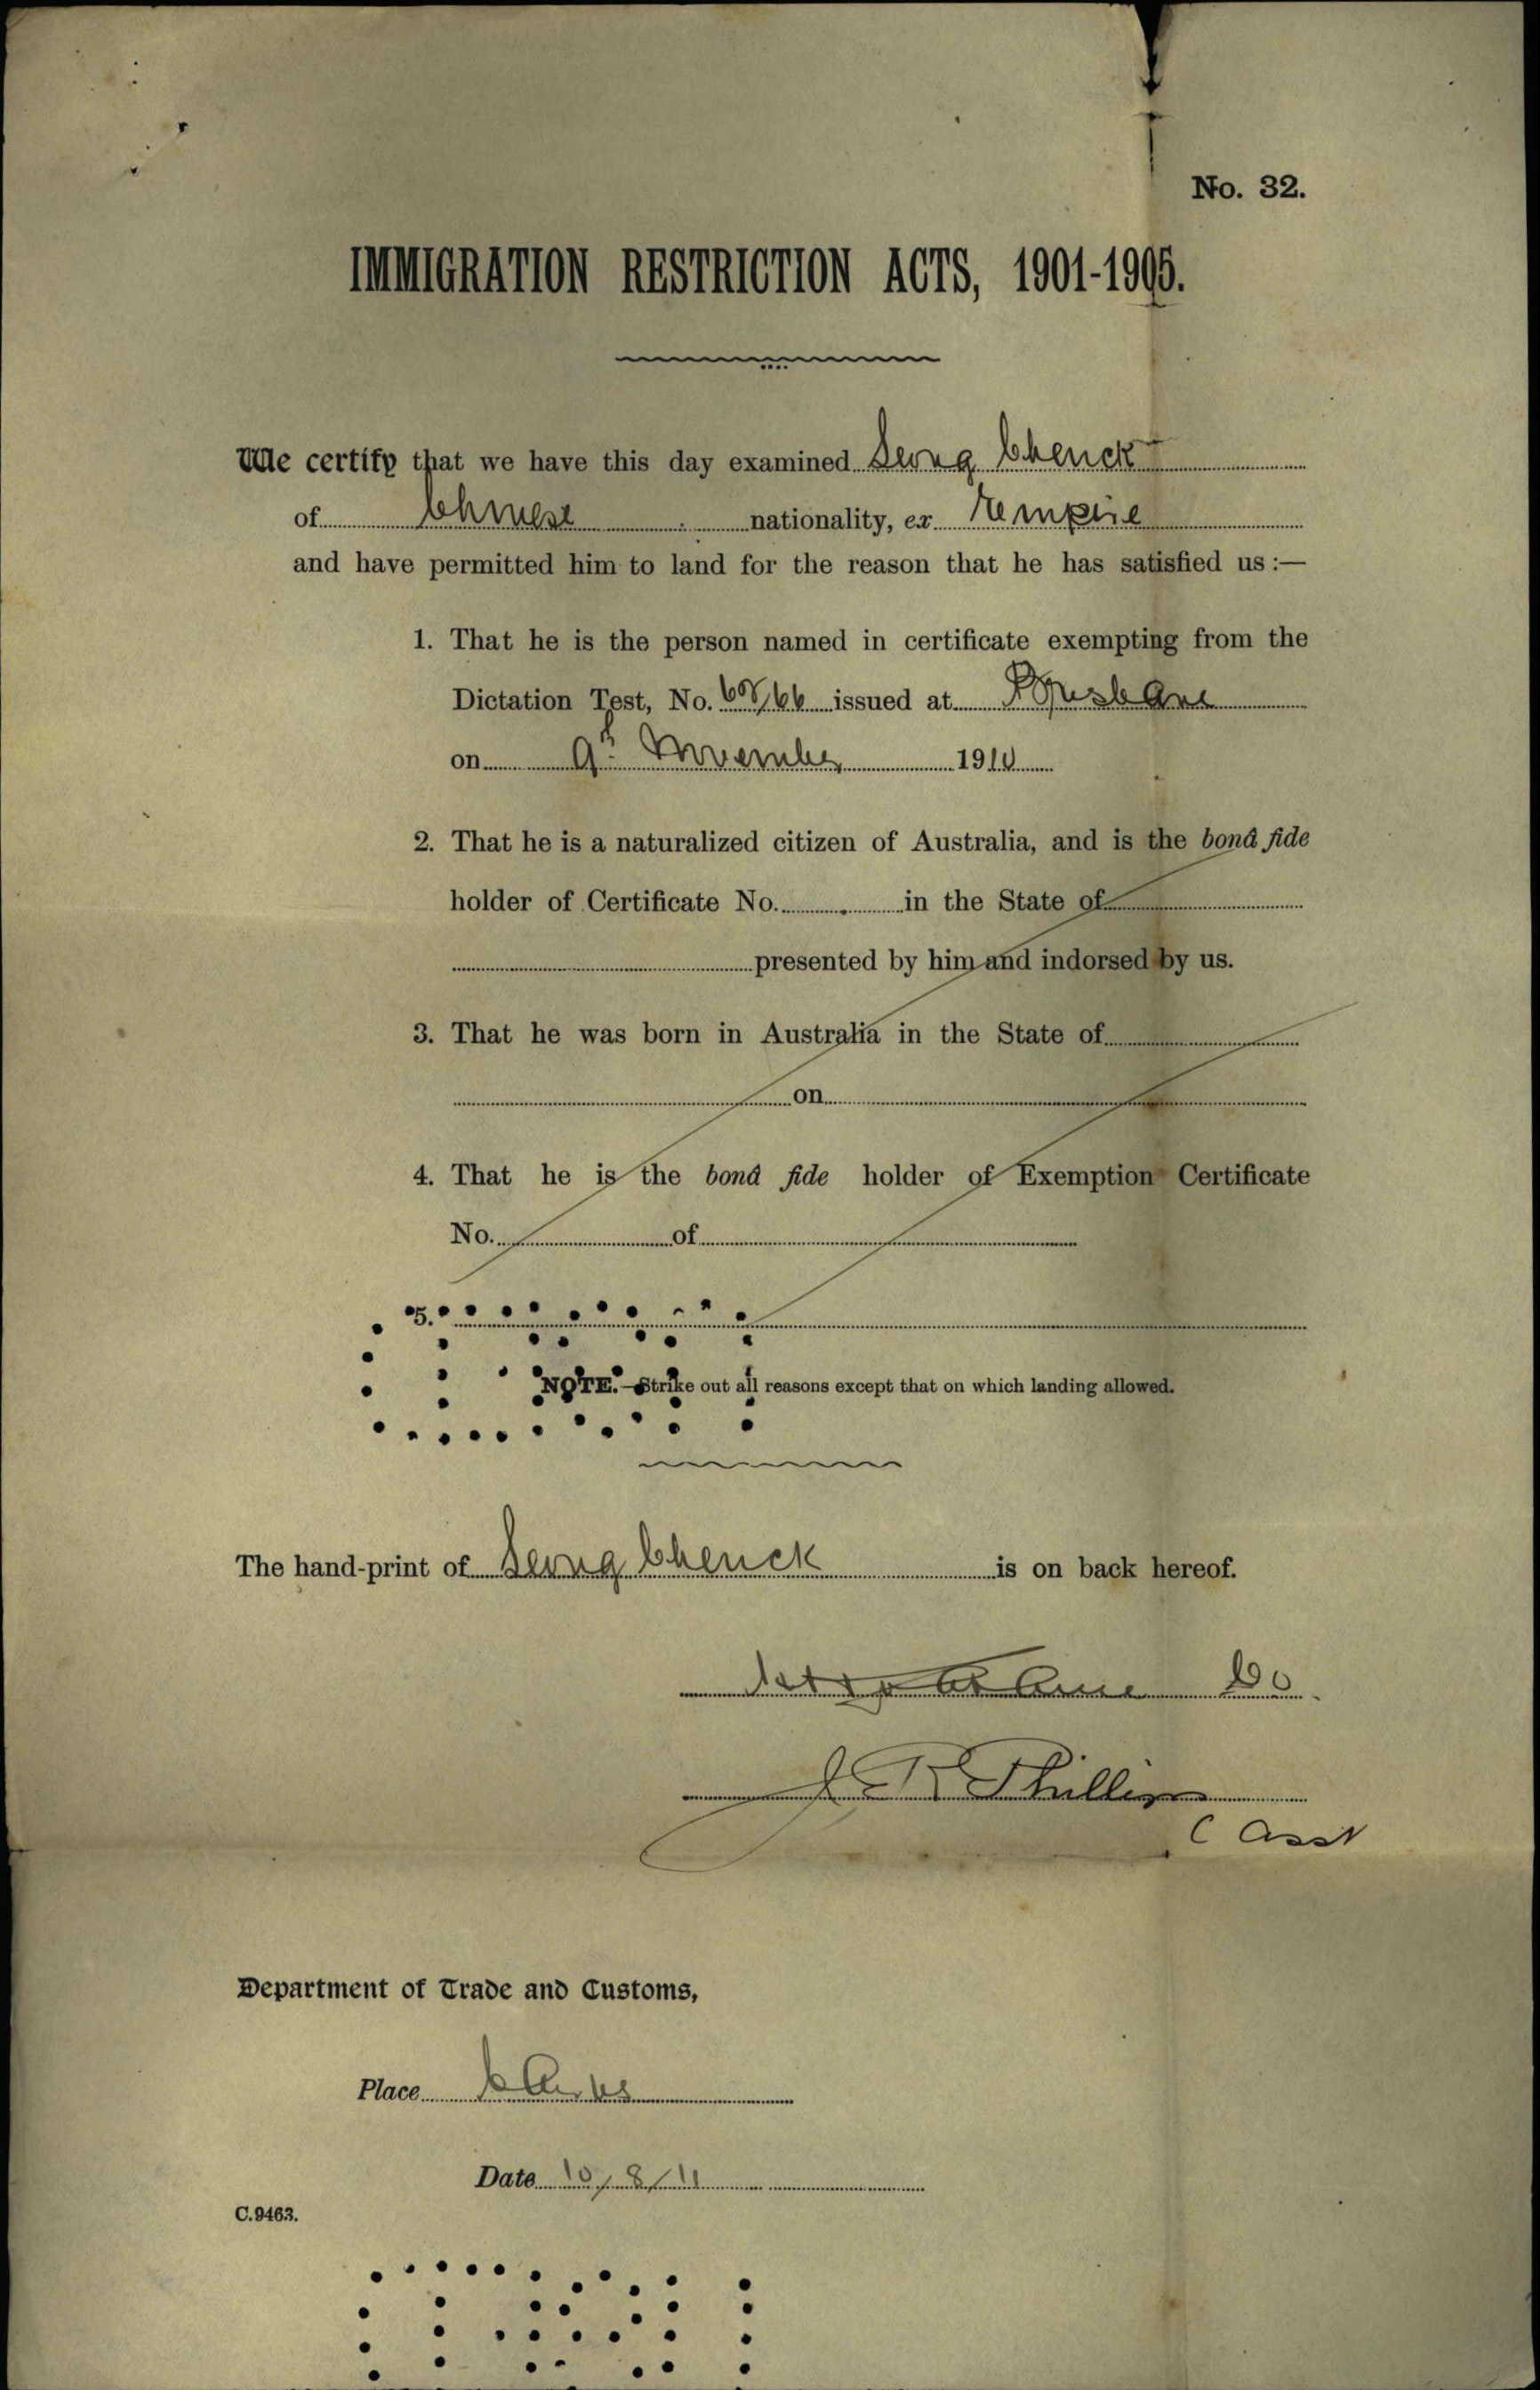 No. 32.
IMMIGRATION RESTRICTION ACTS, 1901-1905.
We certify that we have this day examined Chenck
of Chinese nationality, ex Empire
and have permitted him to land for the reason that he has satisfied us :—
1. That he is the person named in certificate exempting from the
Dictation Test, No. issued at Brisbane
on 9th November 1910
2. That he is a naturalized citizen of Australia, and is the bonâ fide
holder of Certificate No. in the State of
presented by him and indorsed by us.
3. That he was born in Australia in the State of
on
4. That he is the bonâ fide holder of Exemption Certificate
No. of
5.
NOTE.—Strike out all reasons except that on which landing allowed.
The hand-print of Chenck is on back hereof.
J R Phillips
C Asst
Department of Trade and Customs,
Place Cairns
Date 10/8/11
C.9463.